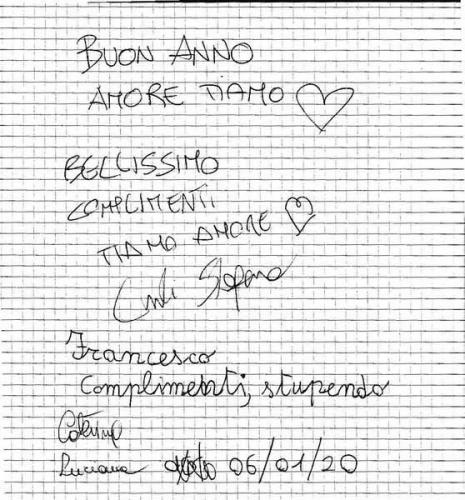 BUON ANNO
AMORE TIAMO
BELLISSIMO
COMPLIMENTI
TIAMO AMORE
Stefano
Francesco
Complimenti, stupendo
Caterina
Luciana 06/01/20